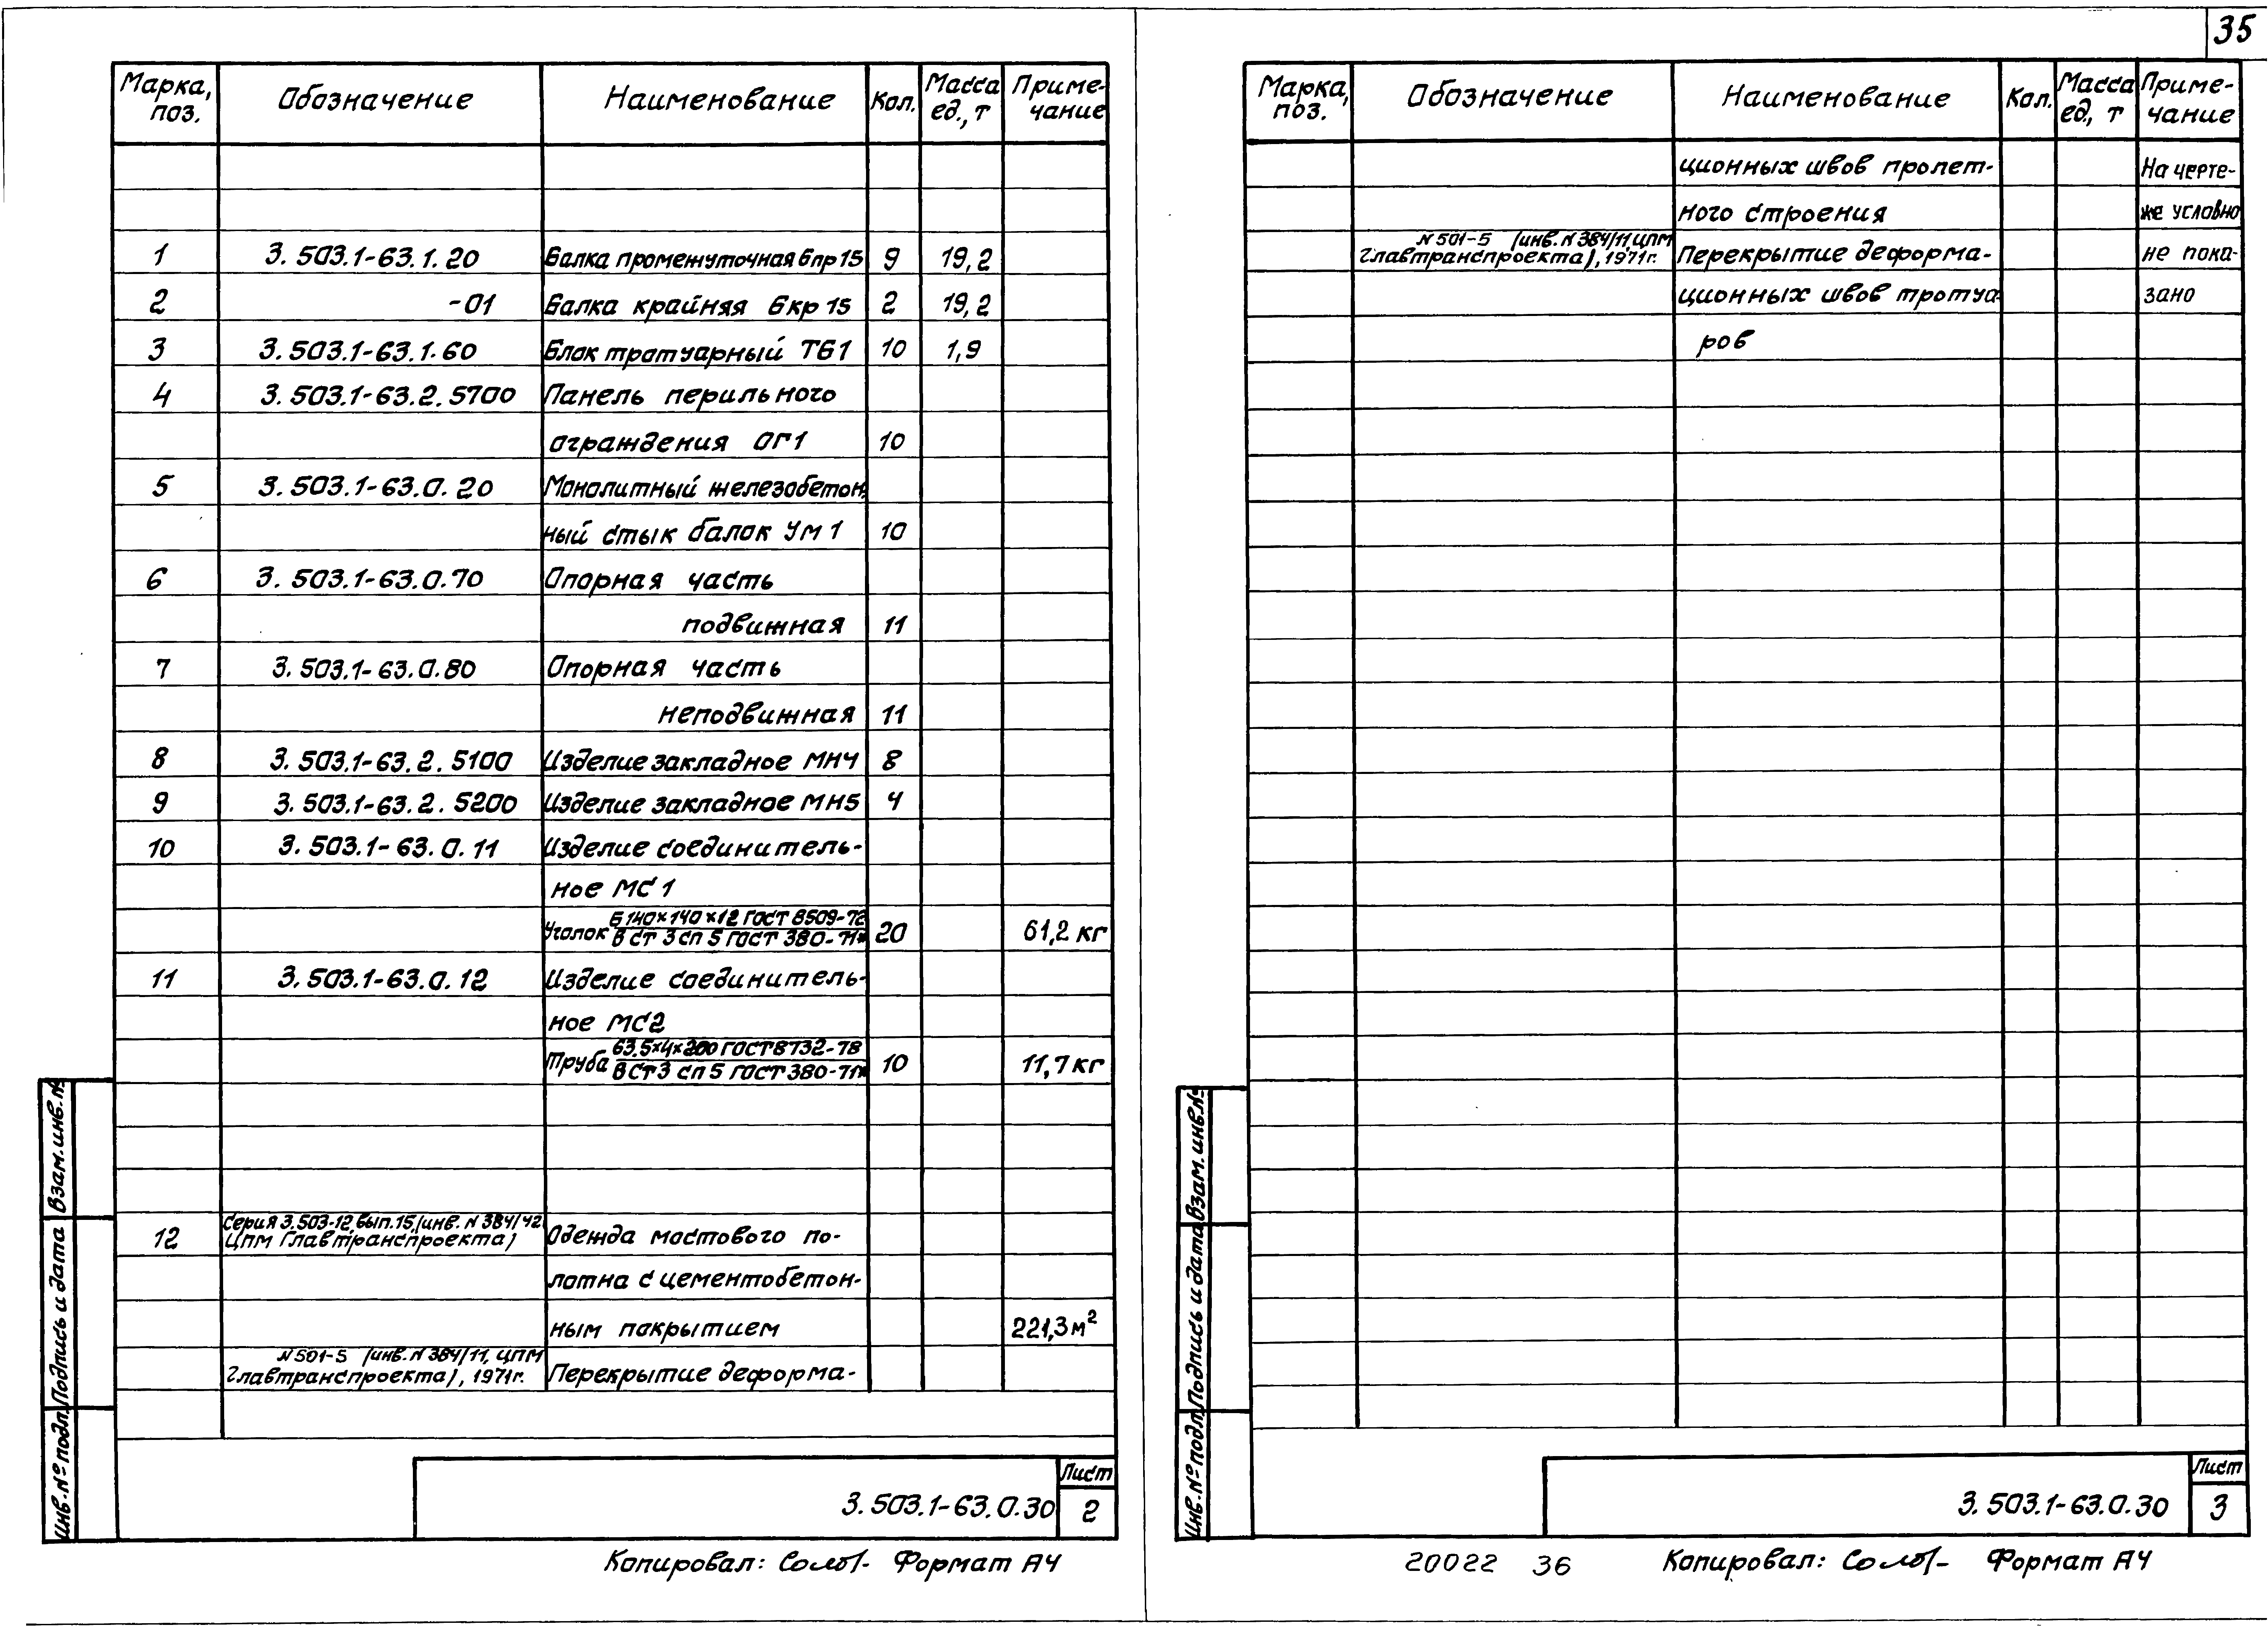 35
Марка, поз. Обозначение Наименование Кол. Масса ед., т Примечание
1 3.503.1-63.1.20 Балка промежуточная Бпр15 9 19,2
2 -01 Балка крайняя Бкр15 2 19,2
3 3.503.1-63.1.60 Блок тротуарный ТБ1 10 1,9
4 3.503.1-63.2.5700 Панель перильного
ограждения ОГ1 10
5 3.503.1-63.0.20 Монолитный железобетон-
ный стык балок Ум1 10
6 3.503.1-63.0.70 Опорная часть
подвижная 11
7 3.503.1-63.0.80 Опорная часть
неподвижная 11
8 3.503.1-63.2.5100 Изделие закладное МН4 8
9 3.503.1-63.2.5200 Изделие закладное МН5 4
10 3.503.1-63.0.11 Изделие соединитель-
ное МС1
Уголок Б 140×140×12 ГОСТ 8509-72
В СТ 3 сп 5 ГОСТ 380-71* 20 61,2 кг
11 3.503.1-63.0.12 Изделие соединитель-
ное МС2
Труба 63,5×4×200 ГОСТ 8732-78
В СТ 3 сп 5 ГОСТ 380-71* 10 11,7 кг
12 Серия 3.503-12, вып.15, (инв. N 384/42
ЦПМ Главтранспроекта) Одежда мостового по-
лотна с цементобетон-
ным покрытием 221,3 м²
N 501-5 (инв. N 384/11, ЦПМ
Главтранспроекта), 1971г. Перекрытие деформа-
Взам. инв. №
Подпись и дата
Инв. № подл.
3.503.1-63.0.30 Лист 2
Копировал: Формат А4
Марка, поз. Обозначение Наименование Кол. Масса ед, т Примечание
ционных швов пролет- На черте-
ного строения же условно
N 501-5 (инв. N 384/11, ЦПМ
Главтранспроекта), 1971г. Перекрытие деформа- не пока-
ционных швов тротуа- зано
ров
Взам. инв. №
Подпись и дата
Инв. № подл.
3.503.1-63.0.30 Лист 3
20022 36 Копировал: Формат А4